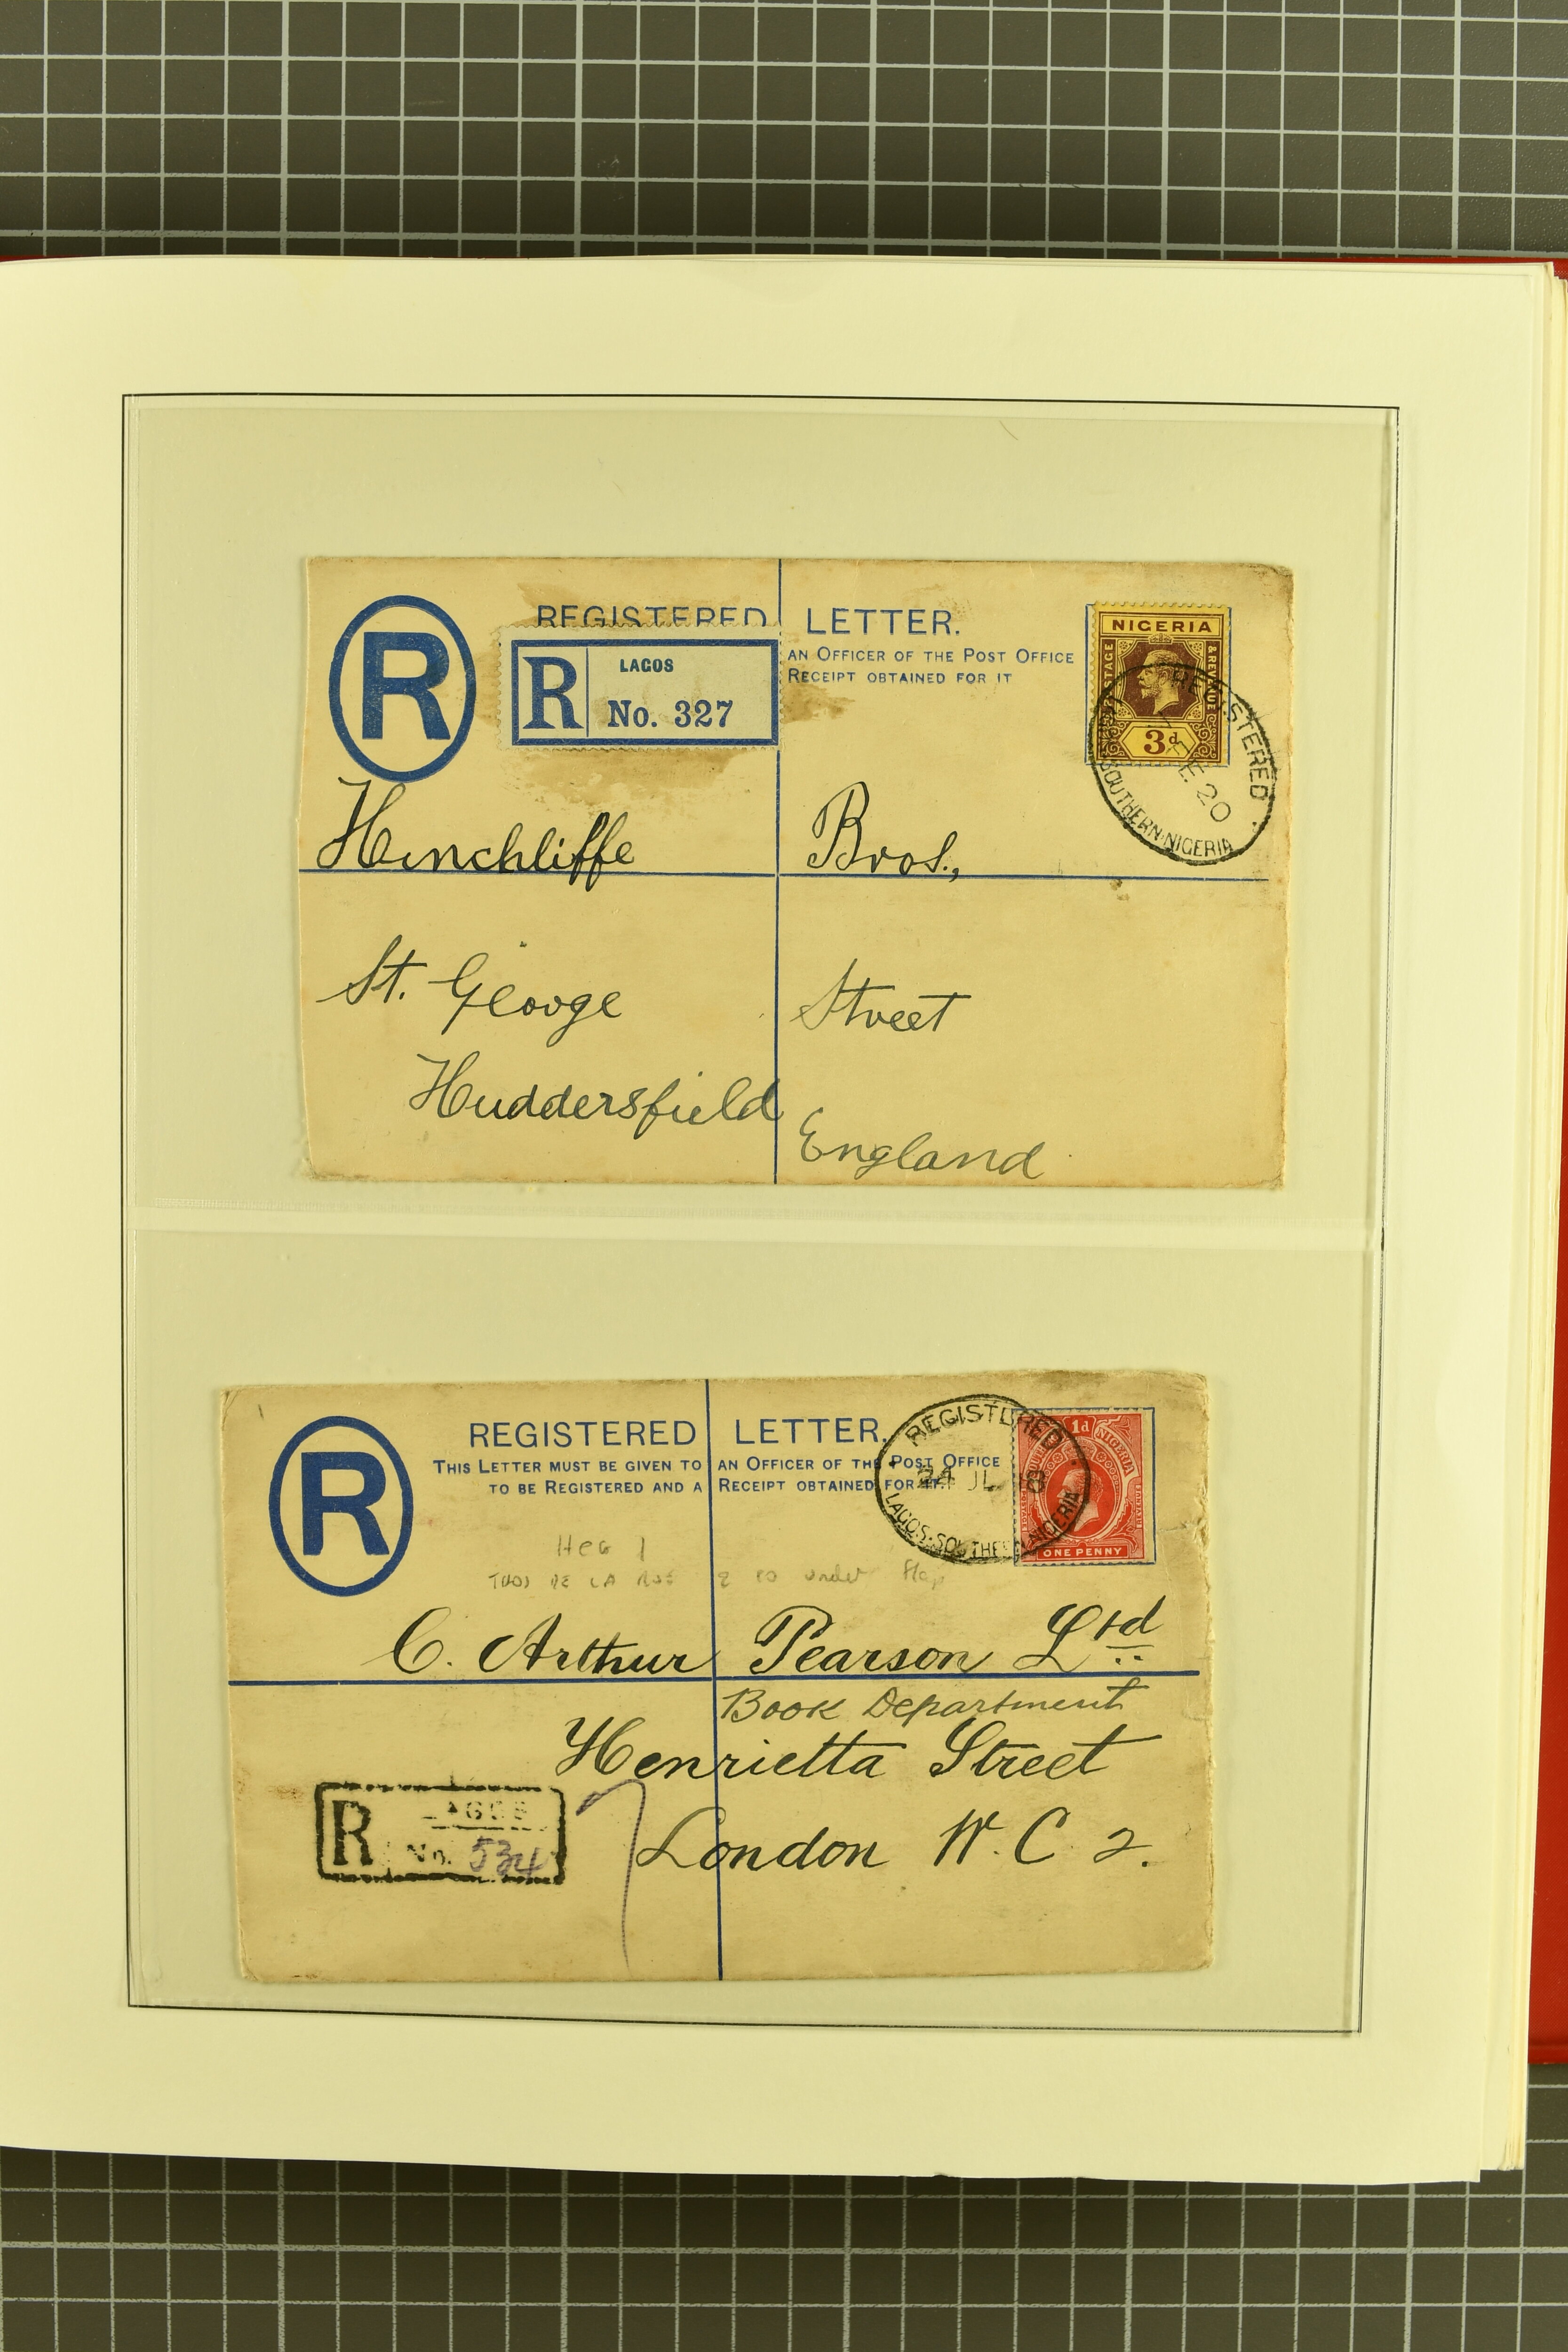 REGISTERED LETTER.
AN OFFICER OF THE POST OFFICE
RECEIPT OBTAINED FOR IT
R
R
LAGOS
No. 327
NIGERIA
POSTAGE
& REVENUE
3d
REGISTERED
FE 20
SOUTHERN·NIGERIA
Hinchliffe Bros.,
St. George Street
Huddersfield
England
REGISTERED LETTER.
THIS LETTER MUST BE GIVEN TO AN OFFICER OF THE POST OFFICE
TO BE REGISTERED AND A RECEIPT OBTAINED FOR IT.
R
REGISTERED
24 JL 18
LAGOS·SOUTHERN NIGERIA
1d
SOUTHERN NIGERIA
REVENUE
ONE PENNY
H&G 1
THOS DE LA RUE & CO under flap
C. Arthur Pearson Ltd
Book Department
Henrietta Street
London W. C 2.
R
LAGOS
No. 534